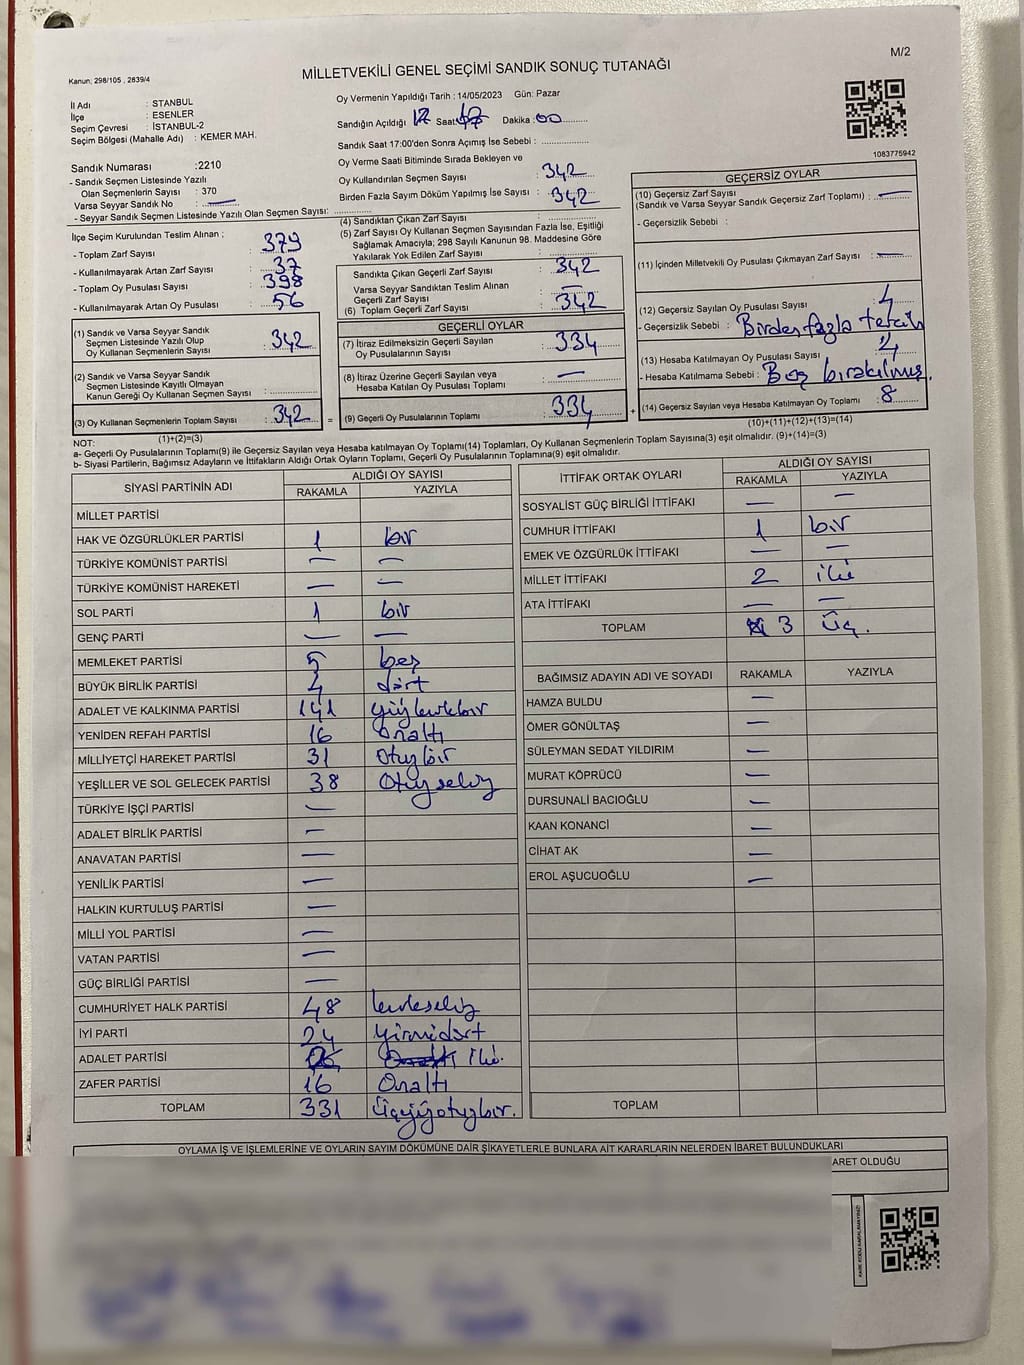 M/2
Kanun; 298/105 , 2839/4
MİLLETVEKİLİ GENEL SEÇİMİ SANDIK SONUÇ TUTANAĞI
İl Adı : STANBUL
İlçe : ESENLER
Seçim Çevresi : İSTANBUL-2
Seçim Bölgesi (Mahalle Adı) : KEMER MAH.
Sandık Numarası :2210
- Sandık Seçmen Listesinde Yazılı
Olan Seçmenlerin Sayısı : 370
Varsa Seyyar Sandık No : —
- Seyyar Sandık Seçmen Listesinde Yazılı Olan Seçmen Sayısı:
Oy Vermenin Yapıldığı Tarih : 14/05/2023 Gün: Pazar
Sandığın Açıldığı Saat 17 Dakika : 00
Sandık Saat 17:00'den Sonra Açımış İse Sebebi :
Oy Verme Saati Bitiminde Sırada Bekleyen ve
Oy Kullandırılan Seçmen Sayısı : 342
Birden Fazla Sayım Döküm Yapılmış İse Sayısı : 342
1083775942
İlçe Seçim Kurulundan Teslim Alınan ;
- Toplam Zarf Sayısı : 379
- Kullanılmayarak Artan Zarf Sayısı : 37
- Toplam Oy Pusulası Sayısı : 398
- Kullanılmayarak Artan Oy Pusulası : 56
(1) Sandık ve Varsa Seyyar Sandık
Seçmen Listesinde Yazılı Olup
Oy Kullanan Seçmenlerin Sayısı : 342
(2) Sandık ve Varsa Seyyar Sandık
Seçmen Listesinde Kayıtlı Olmayan
Kanun Gereği Oy Kullanan Seçmen Sayısı :
(3) Oy Kullanan Seçmenlerin Toplam Sayısı : 342
(1)+(2)=(3)
(4) Sandıktan Çıkan Zarf Sayısı :
(5) Zarf Sayısı Oy Kullanan Seçmen Sayısından Fazla İse, Eşitliği
Sağlamak Amacıyla; 298 Sayılı Kanunun 98. Maddesine Göre
Yakılarak Yok Edilen Zarf Sayısı :
Sandıkta Çıkan Geçerli Zarf Sayısı : 342
Varsa Seyyar Sandıktan Teslim Alınan
Geçerli Zarf Sayısı : —
(6) Toplam Geçerli Zarf Sayısı : 342
GEÇERLİ OYLAR
(7) İtiraz Edilmeksizin Geçerli Sayılan
Oy Pusulalarının Sayısı : 334
(8) İtiraz Üzerine Geçerli Sayılan veya
Hesaba Katılan Oy Pusulası Toplamı : —
= (9) Geçerli Oy Pusulalarının Toplamı : 334 +
GEÇERSİZ OYLAR
(10) Geçersiz Zarf Sayısı
(Sandık ve Varsa Seyyar Sandık Geçersiz Zarf Toplamı) : —
- Geçersizlik Sebebi :
(11) İçinden Milletvekili Oy Pusulası Çıkmayan Zarf Sayısı : —
(12) Geçersiz Sayılan Oy Pusulası Sayısı : 4
- Geçersizlik Sebebi : Birden fazla tercih
(13) Hesaba Katılmayan Oy Pusulası Sayısı : 4
- Hesaba Katılmama Sebebi : Boş bırakılmış.
(14) Geçersiz Sayılan veya Hesaba Katılmayan Oy Toplamı : 8
(10)+(11)+(12)+(13)=(14)
NOT:
a- Geçerli Oy Pusulalarının Toplamı(9) ile Geçersiz Sayılan veya Hesaba katılmayan Oy Toplamı(14) Toplamları, Oy Kullanan Seçmenlerin Toplam Sayısına(3) eşit olmalıdır. (9)+(14)=(3)
b- Siyasi Partilerin, Bağımsız Adayların ve İttifakların Aldığı Ortak Oyların Toplamı, Geçerli Oy Pusulalarının Toplamına(9) eşit olmalıdır.
SİYASİ PARTİNİN ADI ALDIĞI OY SAYISI
RAKAMLA YAZIYLA
MİLLET PARTİSİ
HAK VE ÖZGÜRLÜKLER PARTİSİ 1 bir
TÜRKİYE KOMÜNİST PARTİSİ — —
TÜRKİYE KOMÜNİST HAREKETİ — —
SOL PARTİ 1 bir
GENÇ PARTİ — —
MEMLEKET PARTİSİ 5 beş
BÜYÜK BİRLİK PARTİSİ 4 dört
ADALET VE KALKINMA PARTİSİ 141 yüzkırkbir
YENİDEN REFAH PARTİSİ 16 Onaltı
MİLLİYETÇİ HAREKET PARTİSİ 31 Otuzbir
YEŞİLLER VE SOL GELECEK PARTİSİ 38 Otuzsekiz
TÜRKİYE İŞÇİ PARTİSİ —
ADALET BİRLİK PARTİSİ —
ANAVATAN PARTİSİ —
YENİLİK PARTİSİ —
HALKIN KURTULUŞ PARTİSİ —
MİLLİ YOL PARTİSİ —
VATAN PARTİSİ —
GÜÇ BİRLİĞİ PARTİSİ —
CUMHURİYET HALK PARTİSİ 48 kırksekiz
İYİ PARTİ 24 yirmidört
ADALET PARTİSİ iki.
ZAFER PARTİSİ 16 Onaltı
TOPLAM 331 üçyüzotuzbir.
İTTİFAK ORTAK OYLARI ALDIĞI OY SAYISI
RAKAMLA YAZIYLA
SOSYALİST GÜÇ BİRLİĞİ İTTİFAKI — —
CUMHUR İTTİFAKI 1 bir
EMEK VE ÖZGÜRLÜK İTTİFAKI — —
MİLLET İTTİFAKI 2 iki
ATA İTTİFAKI — —
TOPLAM 3 üç.
BAĞIMSIZ ADAYIN ADI VE SOYADI RAKAMLA YAZIYLA
HAMZA BULDU —
ÖMER GÖNÜLTAŞ —
SÜLEYMAN SEDAT YILDIRIM —
MURAT KÖPRÜCÜ —
DURSUNALİ BACIOĞLU —
KAAN KONANCİ —
CİHAT AK —
EROL AŞUCUOĞLU —
TOPLAM
OYLAMA İŞ VE İŞLEMLERİNE VE OYLARIN SAYIM DÖKÜMÜNE DAİR ŞİKAYETLERLE BUNLARA AİT KARARLARIN NELERDEN İBARET BULUNDUKLARI
ARET OLDUĞU